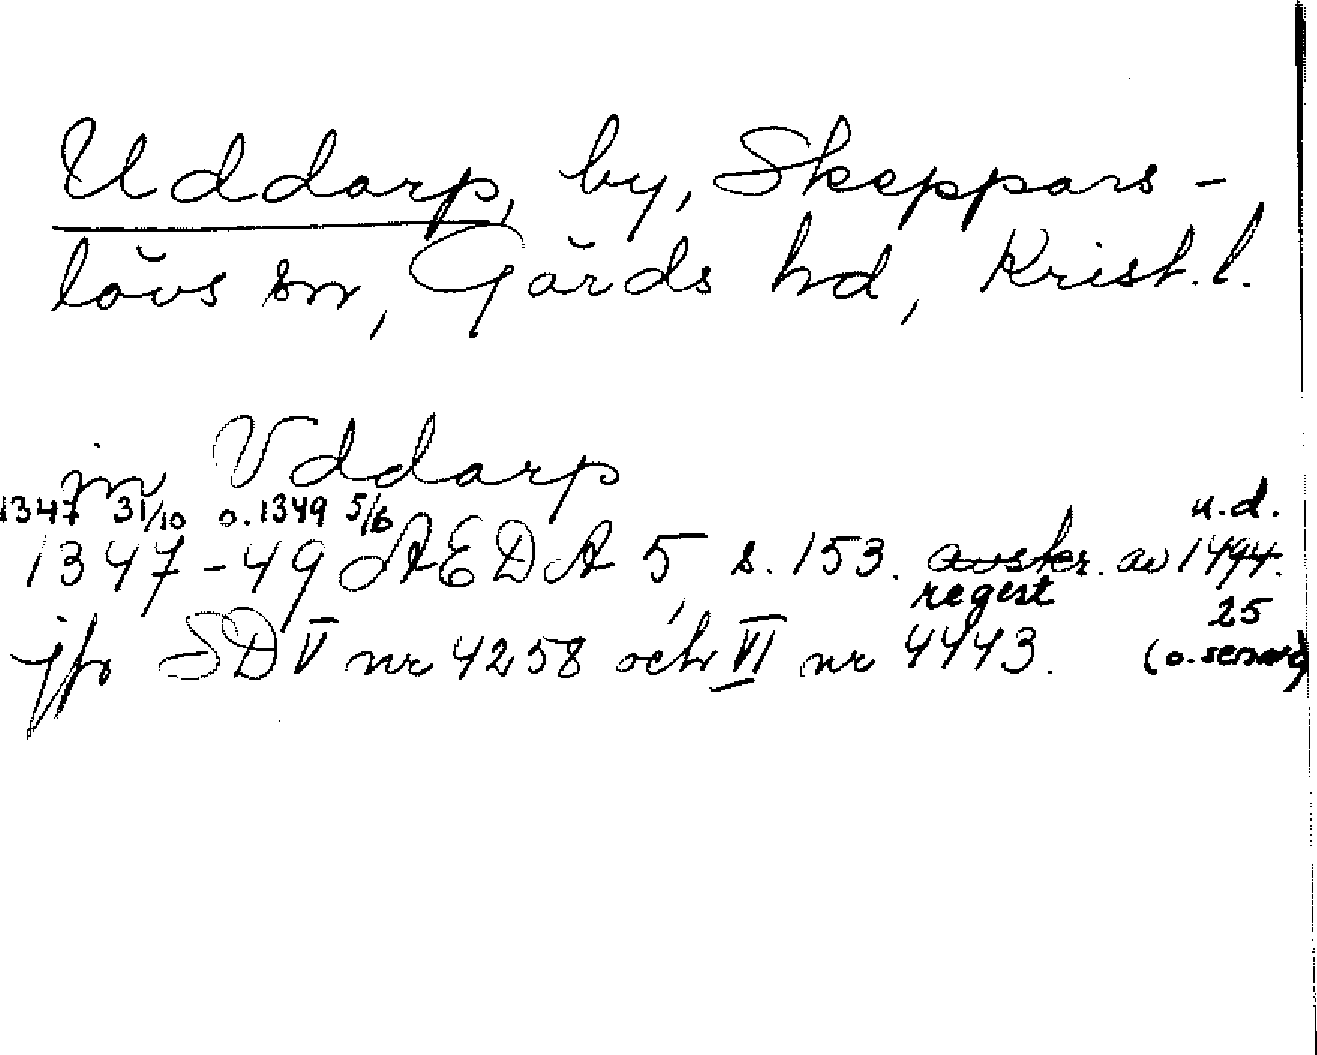 Uddarp, by, Skeppars-
lövs sn, Gärds hd, Krist.l.
jn Vddarp
1347 31/10 o. 1349 5/6 u.d.
1347-49 ÆDA 5, s. 153. avskr. av 1494.
regest 25
jfr SD V nr 4258 och VI nr 4443. (o. senare)